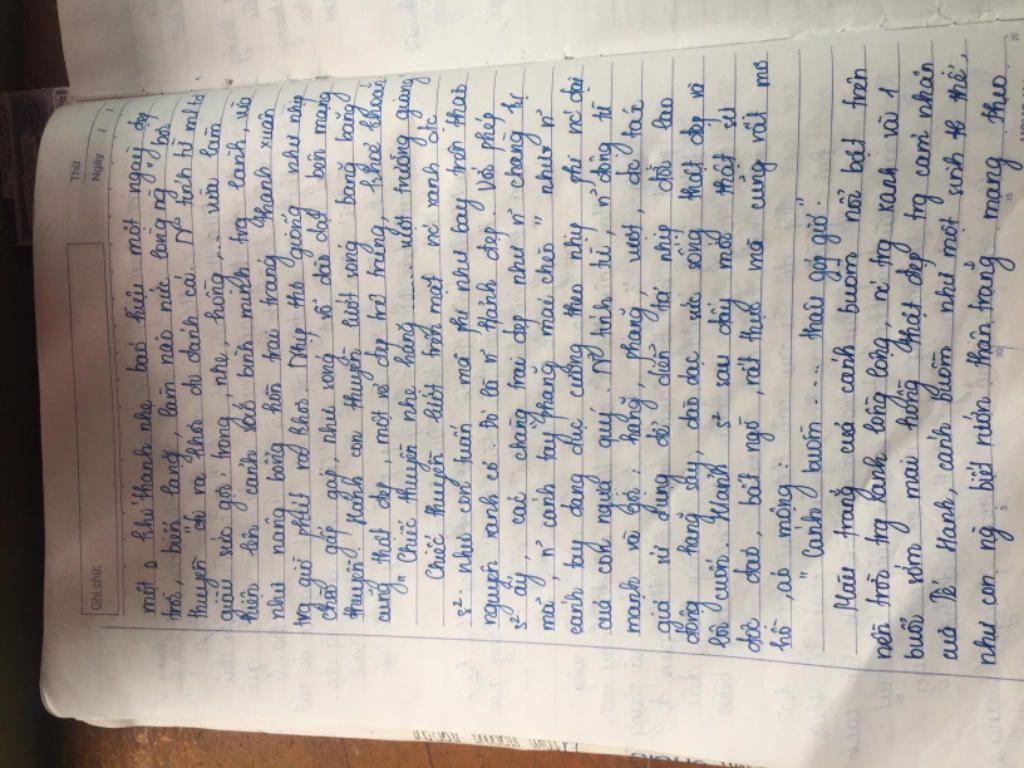 Thứ
Ngày
Ghi chú:
một khí thanh nhẹ báo hiệu một ngày đẹp
trời, biển lặng, làm nức lòng ng bơi
thuyền ra khơi du đánh cá. tính từ m.tả
giàu sức gợi trong, nhẹ, hồng, vừa làm
hiện lên cảnh sắc bình minh trg lành, vừa
như nang bỏng hồn trai tráng thanh xuân
trg giờ phút ra khơi. Nhịp thơ giống như nhịp
chèo gấp gáp như sóng, vỗ dào dạt bên mạng
thuyền. Hành con thuyền lướt sóng băng băng
cũng thật đẹp, một vẻ đẹp trẻ tráng, khỏe khoắn
" Chiếc thuyền nhẹ hăng ... vượt trường giang
Chiếc thuyền lướt trên mặt nc xanh đc
s² như con tuấn mã phi như bay trên thảo
nguyên xanh cỏ tơ là n² thành đẹp. Với phép
s² ấy, các chàng trai đẹp như n² chàng kị
mã, n² cánh tay "phăng mái chèo" như n²
cánh tay đang điều cương theo nhịp phi nc đại
của con ngựa quý. tính từ, n² động từ
mạnh và gợi: hăng, phăng vượt, đc tác
giả sử dụng để diễn tả nhịp đời lao
động hăng say, dào dạt sức sống thật đẹp và
lôi cuốn. Hành s² sau đây mới thật sự
độc đáo, bất ngờ, rất thực mà cũng rất mơ
hồ, ảo mộng:
" Cánh buồm .... thâu góp gió".
Màu trắng của cánh buồm nổi bật trên
nền trời trg xanh lồng lộng, nc trg xanh vào 1
buổi sớm mai hồng thật đẹp trg cảm nhận
của Tế Hanh, cánh buồm như một sinh thể,
như con ng biết rướn thân trắng mang theo